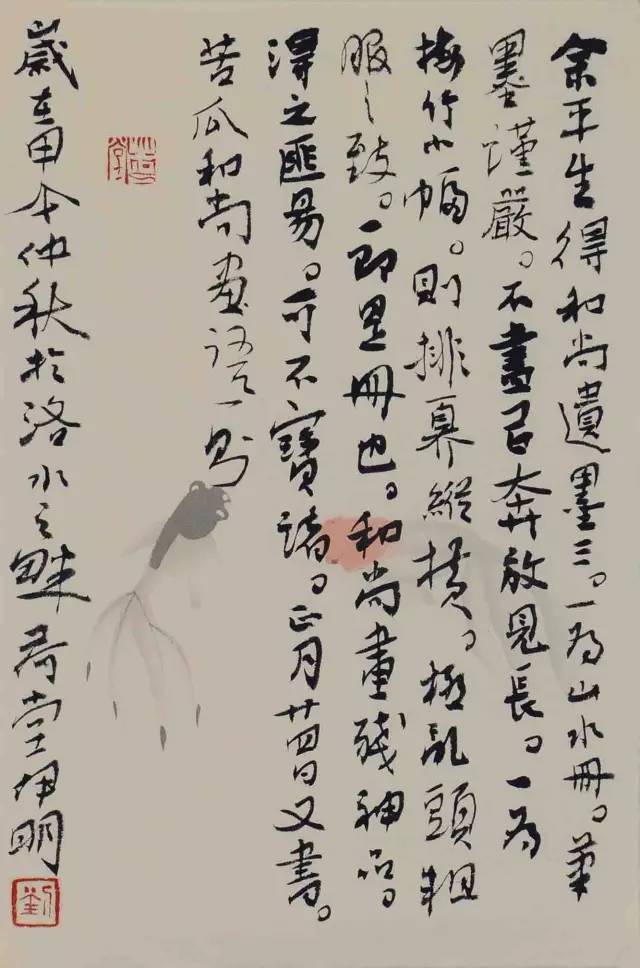 余平生得和尚遺墨三。一為山水冊。筆
墨謹嚴。不盡已奔放見長。一為
梅竹小幅。則排奡縱横。極亂頭粗
服之致。一即是冊也。和尚畫殘神品。
得之匪易。可不寶諸。正月廿四日又書。
苦瓜和尚畫語一則
歲在甲午仲秋於洛水之畔荷堂伊明
劉